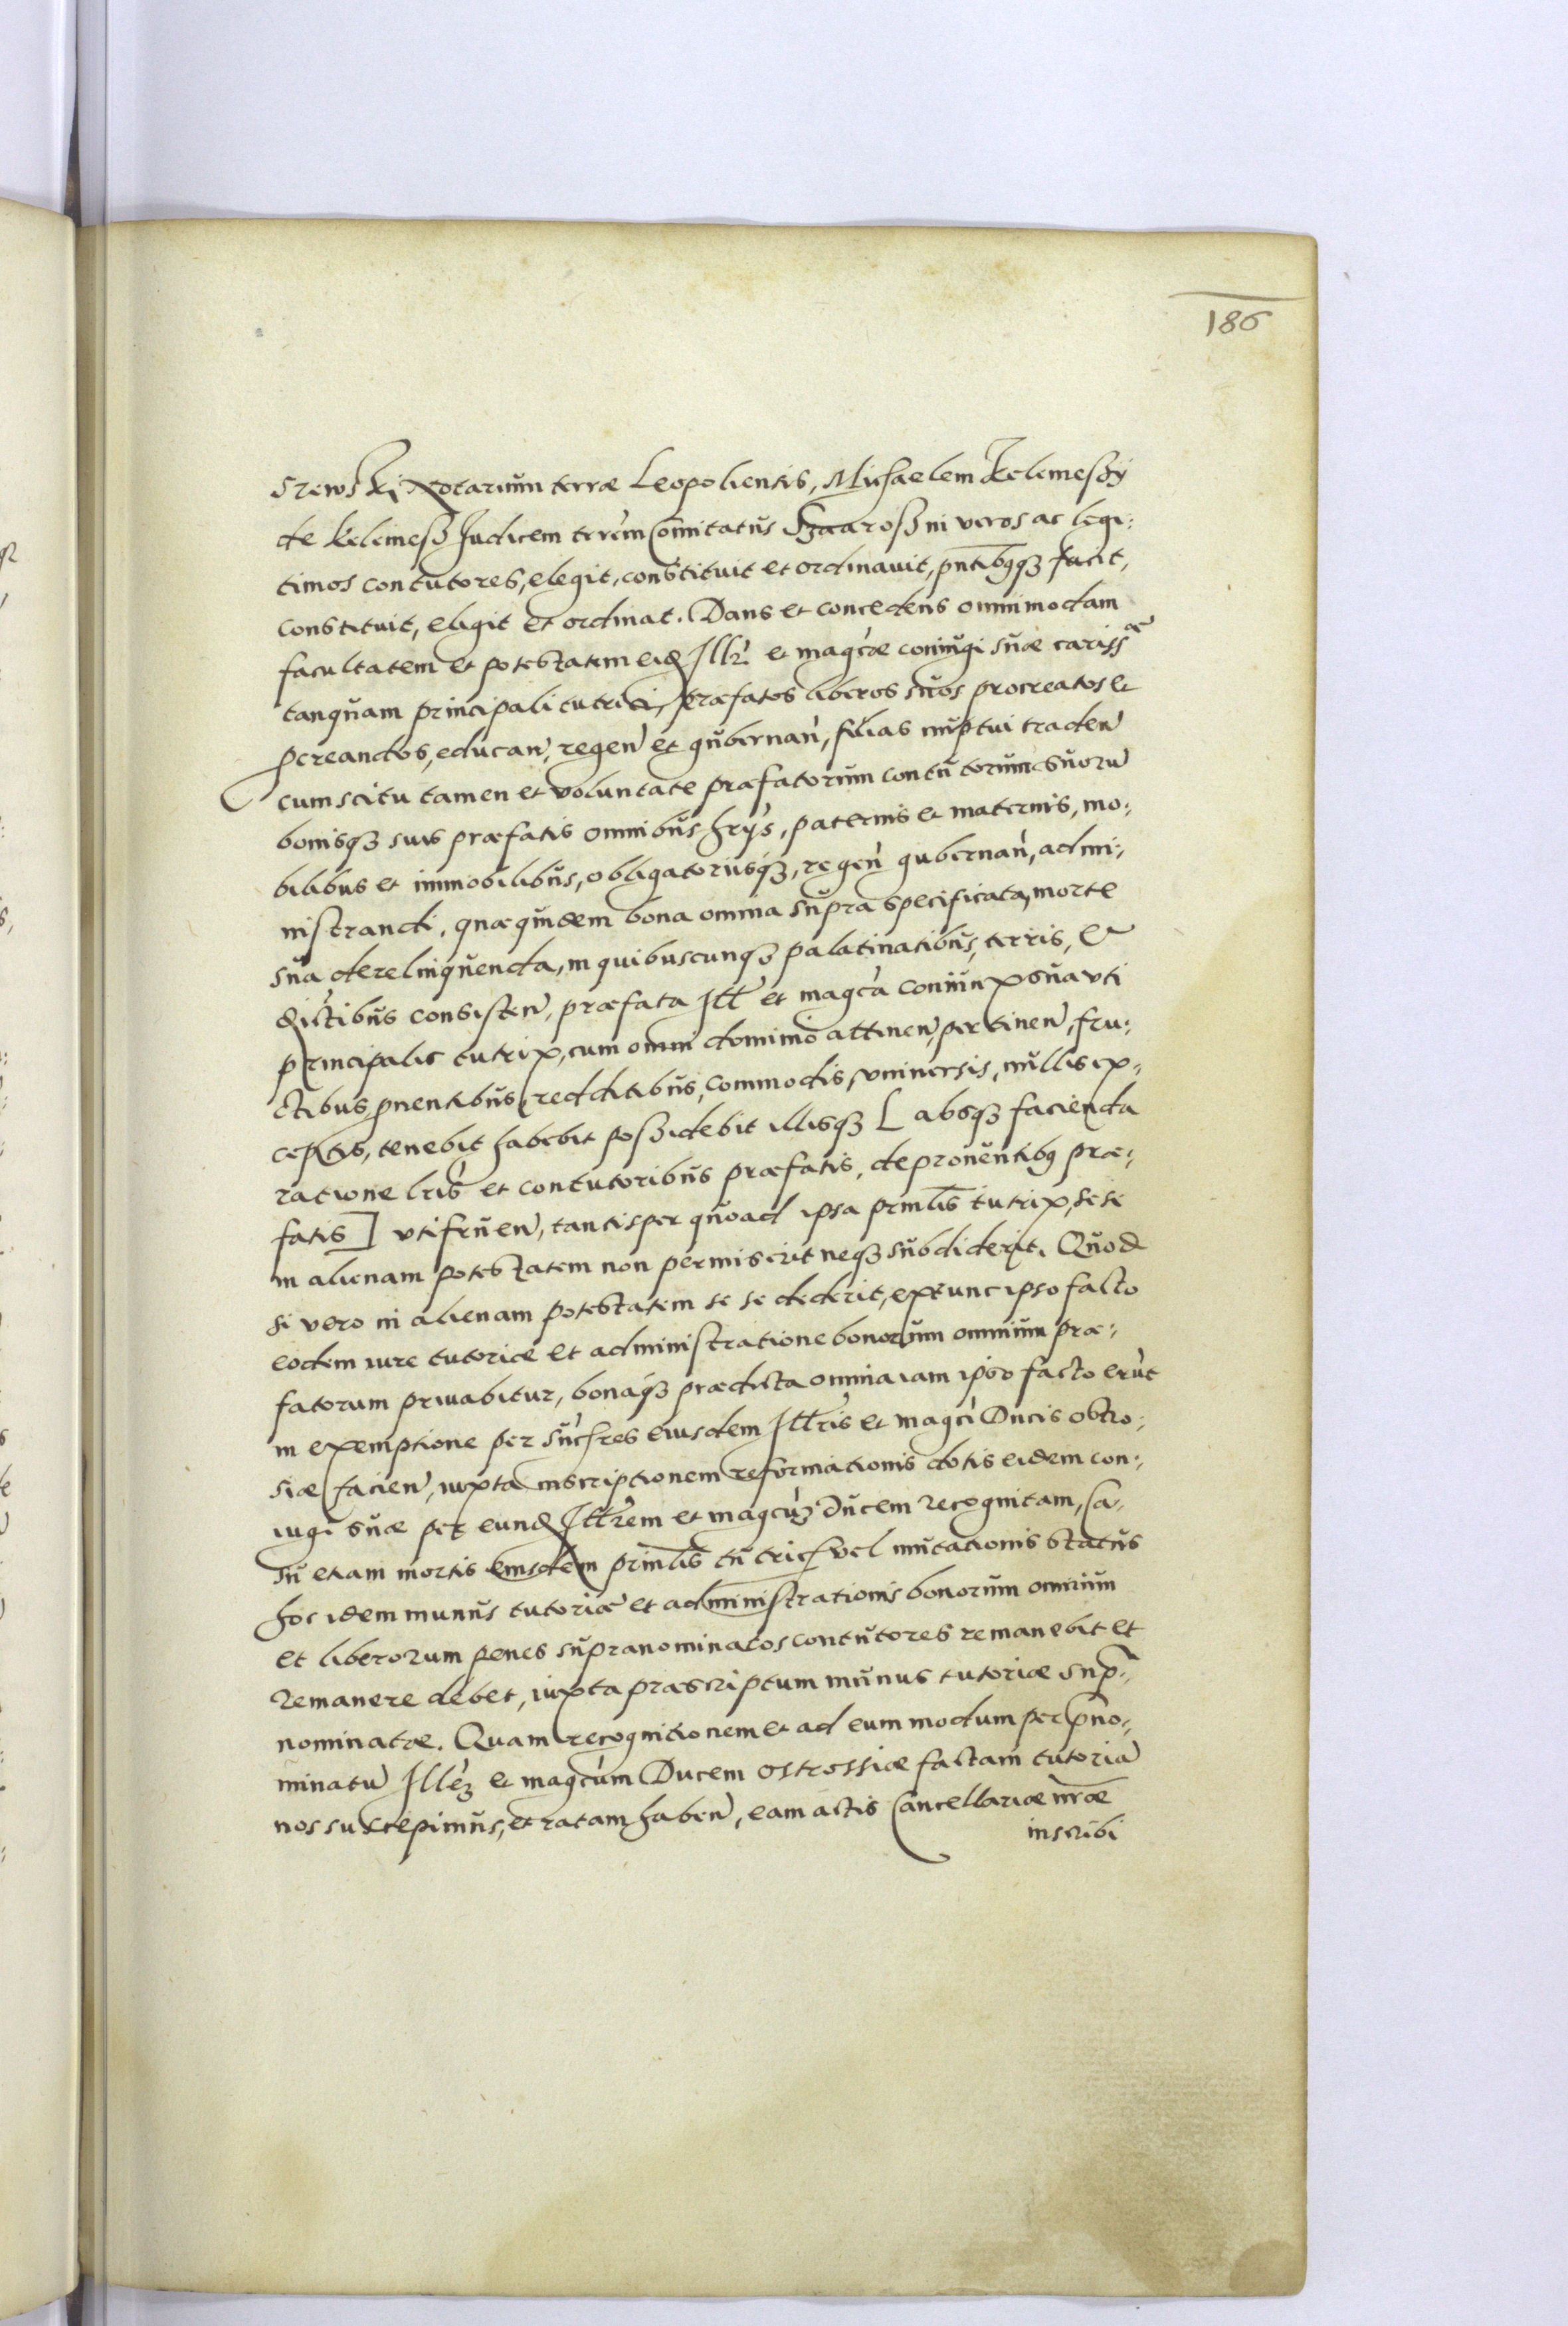 186
srewski Notarium terræ Leopoliensis, Michaelem Kelemeßÿ
de Kelemeß Judicem terrem Comitatus Szaaroß in veros ac legi:
timos contutores, elegit, constituit et ordinauit, pntibusqz facit,
constituit, eligit et ordinat. Dans et concedens omnimodam
facultatem et potestatem eid Illri et magcæ coniugi suæ cariss æ
tanquam principali tutrici, præfatos liberos suos procreatos et
pcreandos, educan, regen et gubernan, filias nuptui traden
cum scitu tamen et voluntate præfatorum contutorum suorum
bonisqz suis præfatis omnibus hrÿs, paternis et maternis, mo:
bilibus et immobilibus, obligatoriisqz, regen gubernan, admi:
nistrandi, quæquidem bona omnia supra specificata, morte
sua derelinquenda, in quibuscunqz palatinatibus, terris, et
districtibus consisten, præfata Ill et magca coniunx sua vti
principalis tutrix, cum omni dominio attinen, pertinen, fru:
ctibus, puentibus, redditibus, commodis vniuersis, nullis ex:
ceptis, tenebit habebit poßidebit illisqz [ absqz facienda
ratione lris et contutoribus præfatis, de prouentibus præ:
fatis ] vtifruen, tantisper quoad ipsa prnlis tutrix, sese
in alienam potestatem non permiserit neqz subdiderit. Quod
si vero in alienam potestatem se se dederit, extunc ipso facto
eodem iure tutoriæ et administratione bonorum omnium præ:
fatorum priuabitur, bonaqz prædicta omnia iam ipso facto erut
in exemptione per succres eiusdem Illris et magci Ducis Ostro:
siæ facien, iuxta inscriptionem reformationis dotis eidem con:
iugi suæ per eund Illrem et magcum Ducem recognitam, Ca:
su etiam mortis eiusdem prinlis tutricis vel mutationis status
hoc idem munus tutoriæ et administrationis bonorum omnium
et liberorum penes supranominatos contutores remanebit et
remanere debet, iuxta præscriptum munus tutoriæ sup:
nominatæ. Quam recognitionem et ad eum modum per pno:
minatu Illez et magcum Ducem Ostrossiæ factam tutoria
nos suscepimus, et ratam haben, eam actis Cancellariæ nræ
inscribi